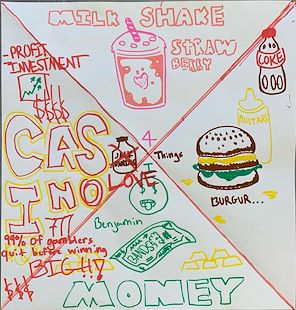 MILK SHAKE
STRAW
BERRY
-PROFIT
INVESTMENT
$$$$
CAS
INO
777
99% of gamblers
quit before winning
BIG!!
$$$
4
Things
I
LOVE
COKE
MUSTARD
BURGUR...
Benjamin
MONEY